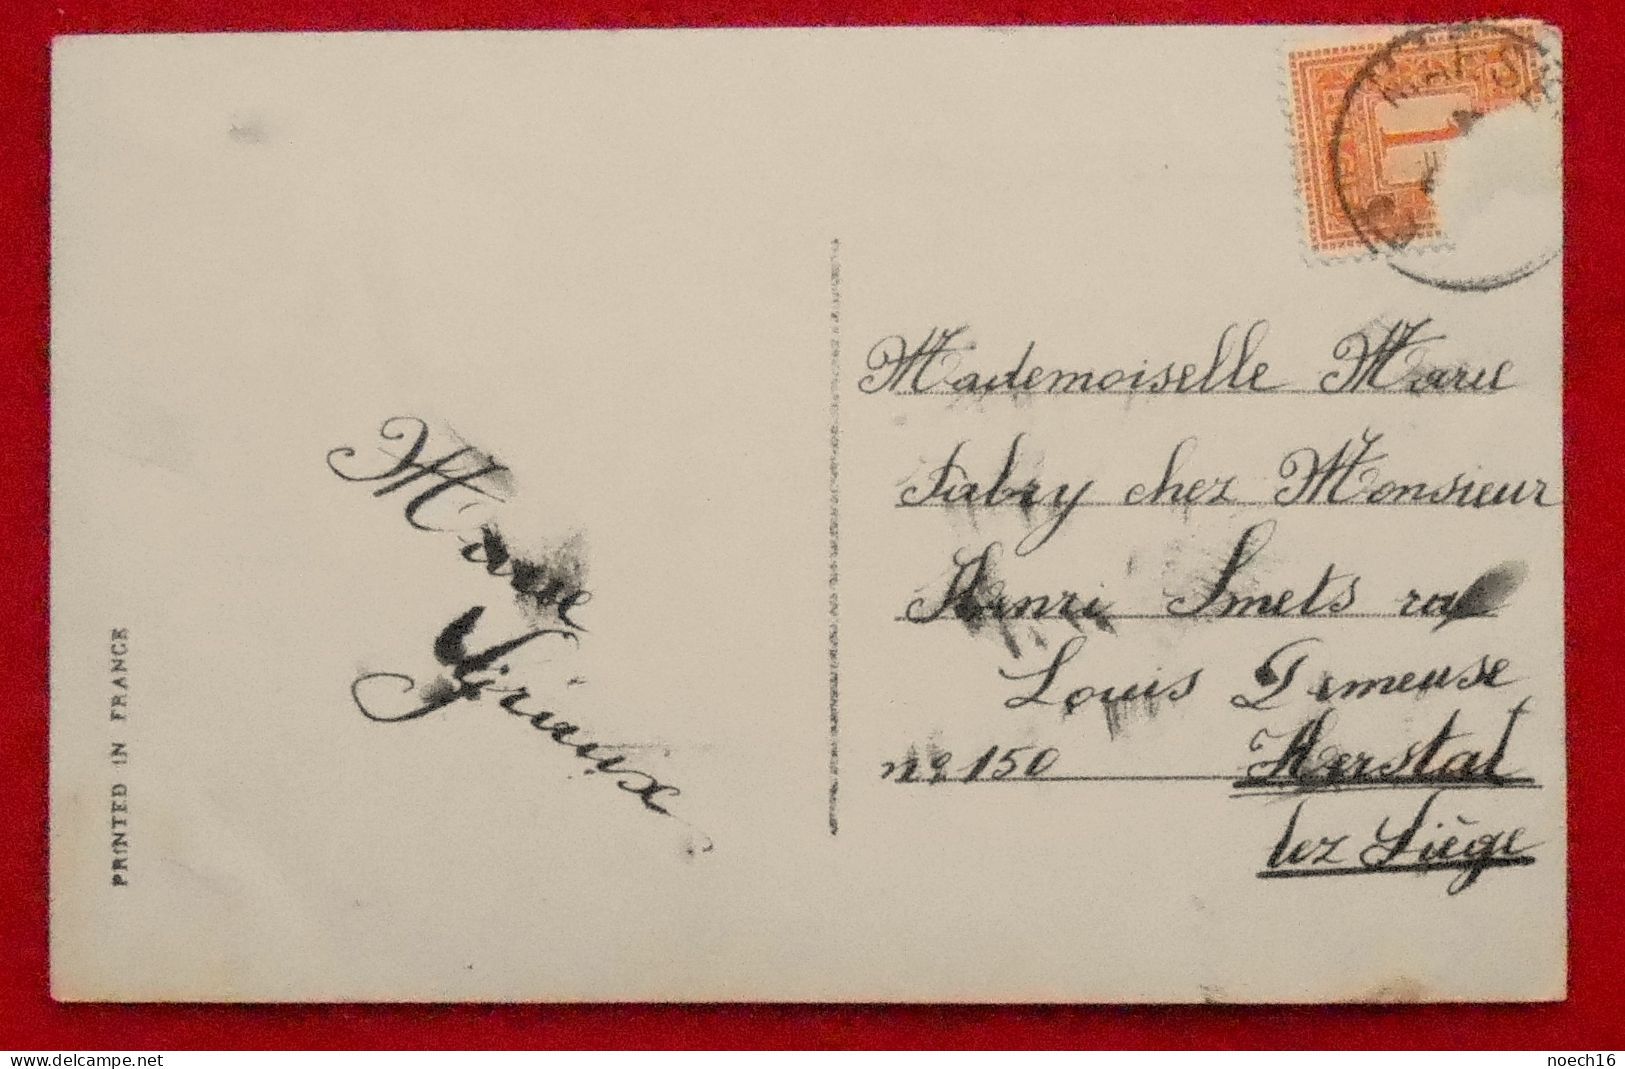 Mademoiselle Marie
Fabry chez Monsieur
Henri Smets rue
Louis Demeuse
nº 150 Herstal
lez Liège
Marie
PRINTED IN FRANCE
1
noech16
delcampe.net